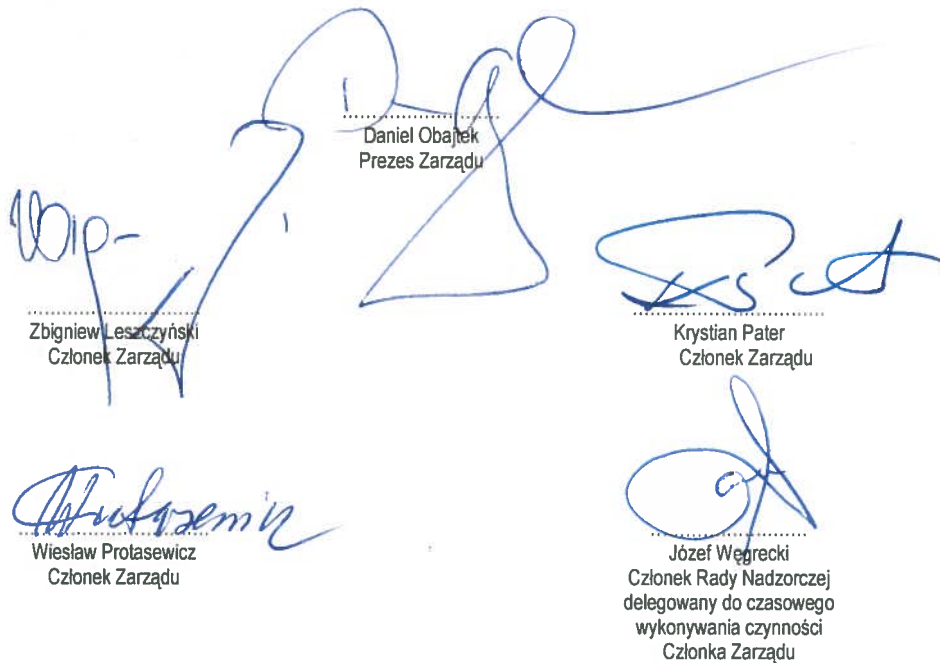 Daniel Obajtek
Prezes Zarządu
Zbigniew Leszczyński
Członek Zarządu
Krystian Pater
Członek Zarządu
Wiesław Protasewicz
Członek Zarządu
Józef Węgrecki
Członek Rady Nadzorczej
delegowany do czasowego
wykonywania czynności
Członka Zarządu